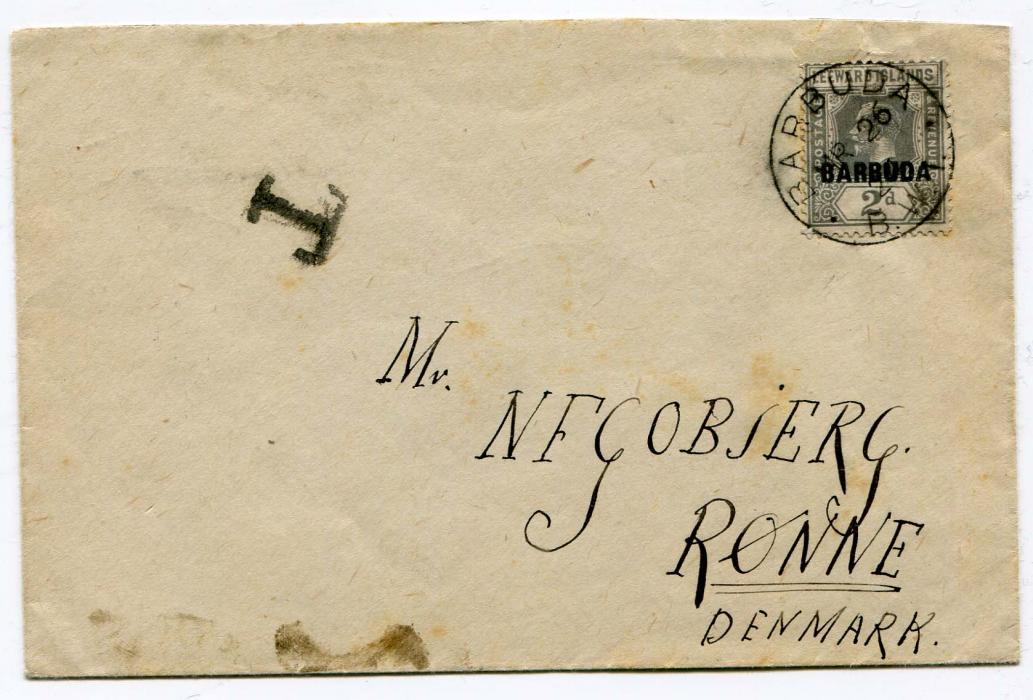 LEEWARD ISLANDS
POSTAGE
REVENUE
BARBUDA
2d
BARBUDA
AP 26
B.W.I.
T
Mr.
NFGOBJERG.
RØNNE
DENMARK.